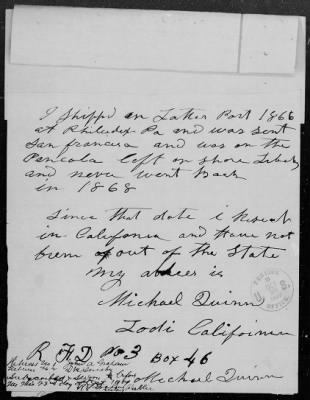 I Shippd on Latter Part 1866
at Philadex Pa and was sent
San francisca and was on the
Pencola left on shore Libety
and never went Back
in 1868
Since that date i Reside
in California and have not
been out of the State
My adrees is
Michael Quinn
Lodi California
R F D No 3 Box 46
Michael Quinn